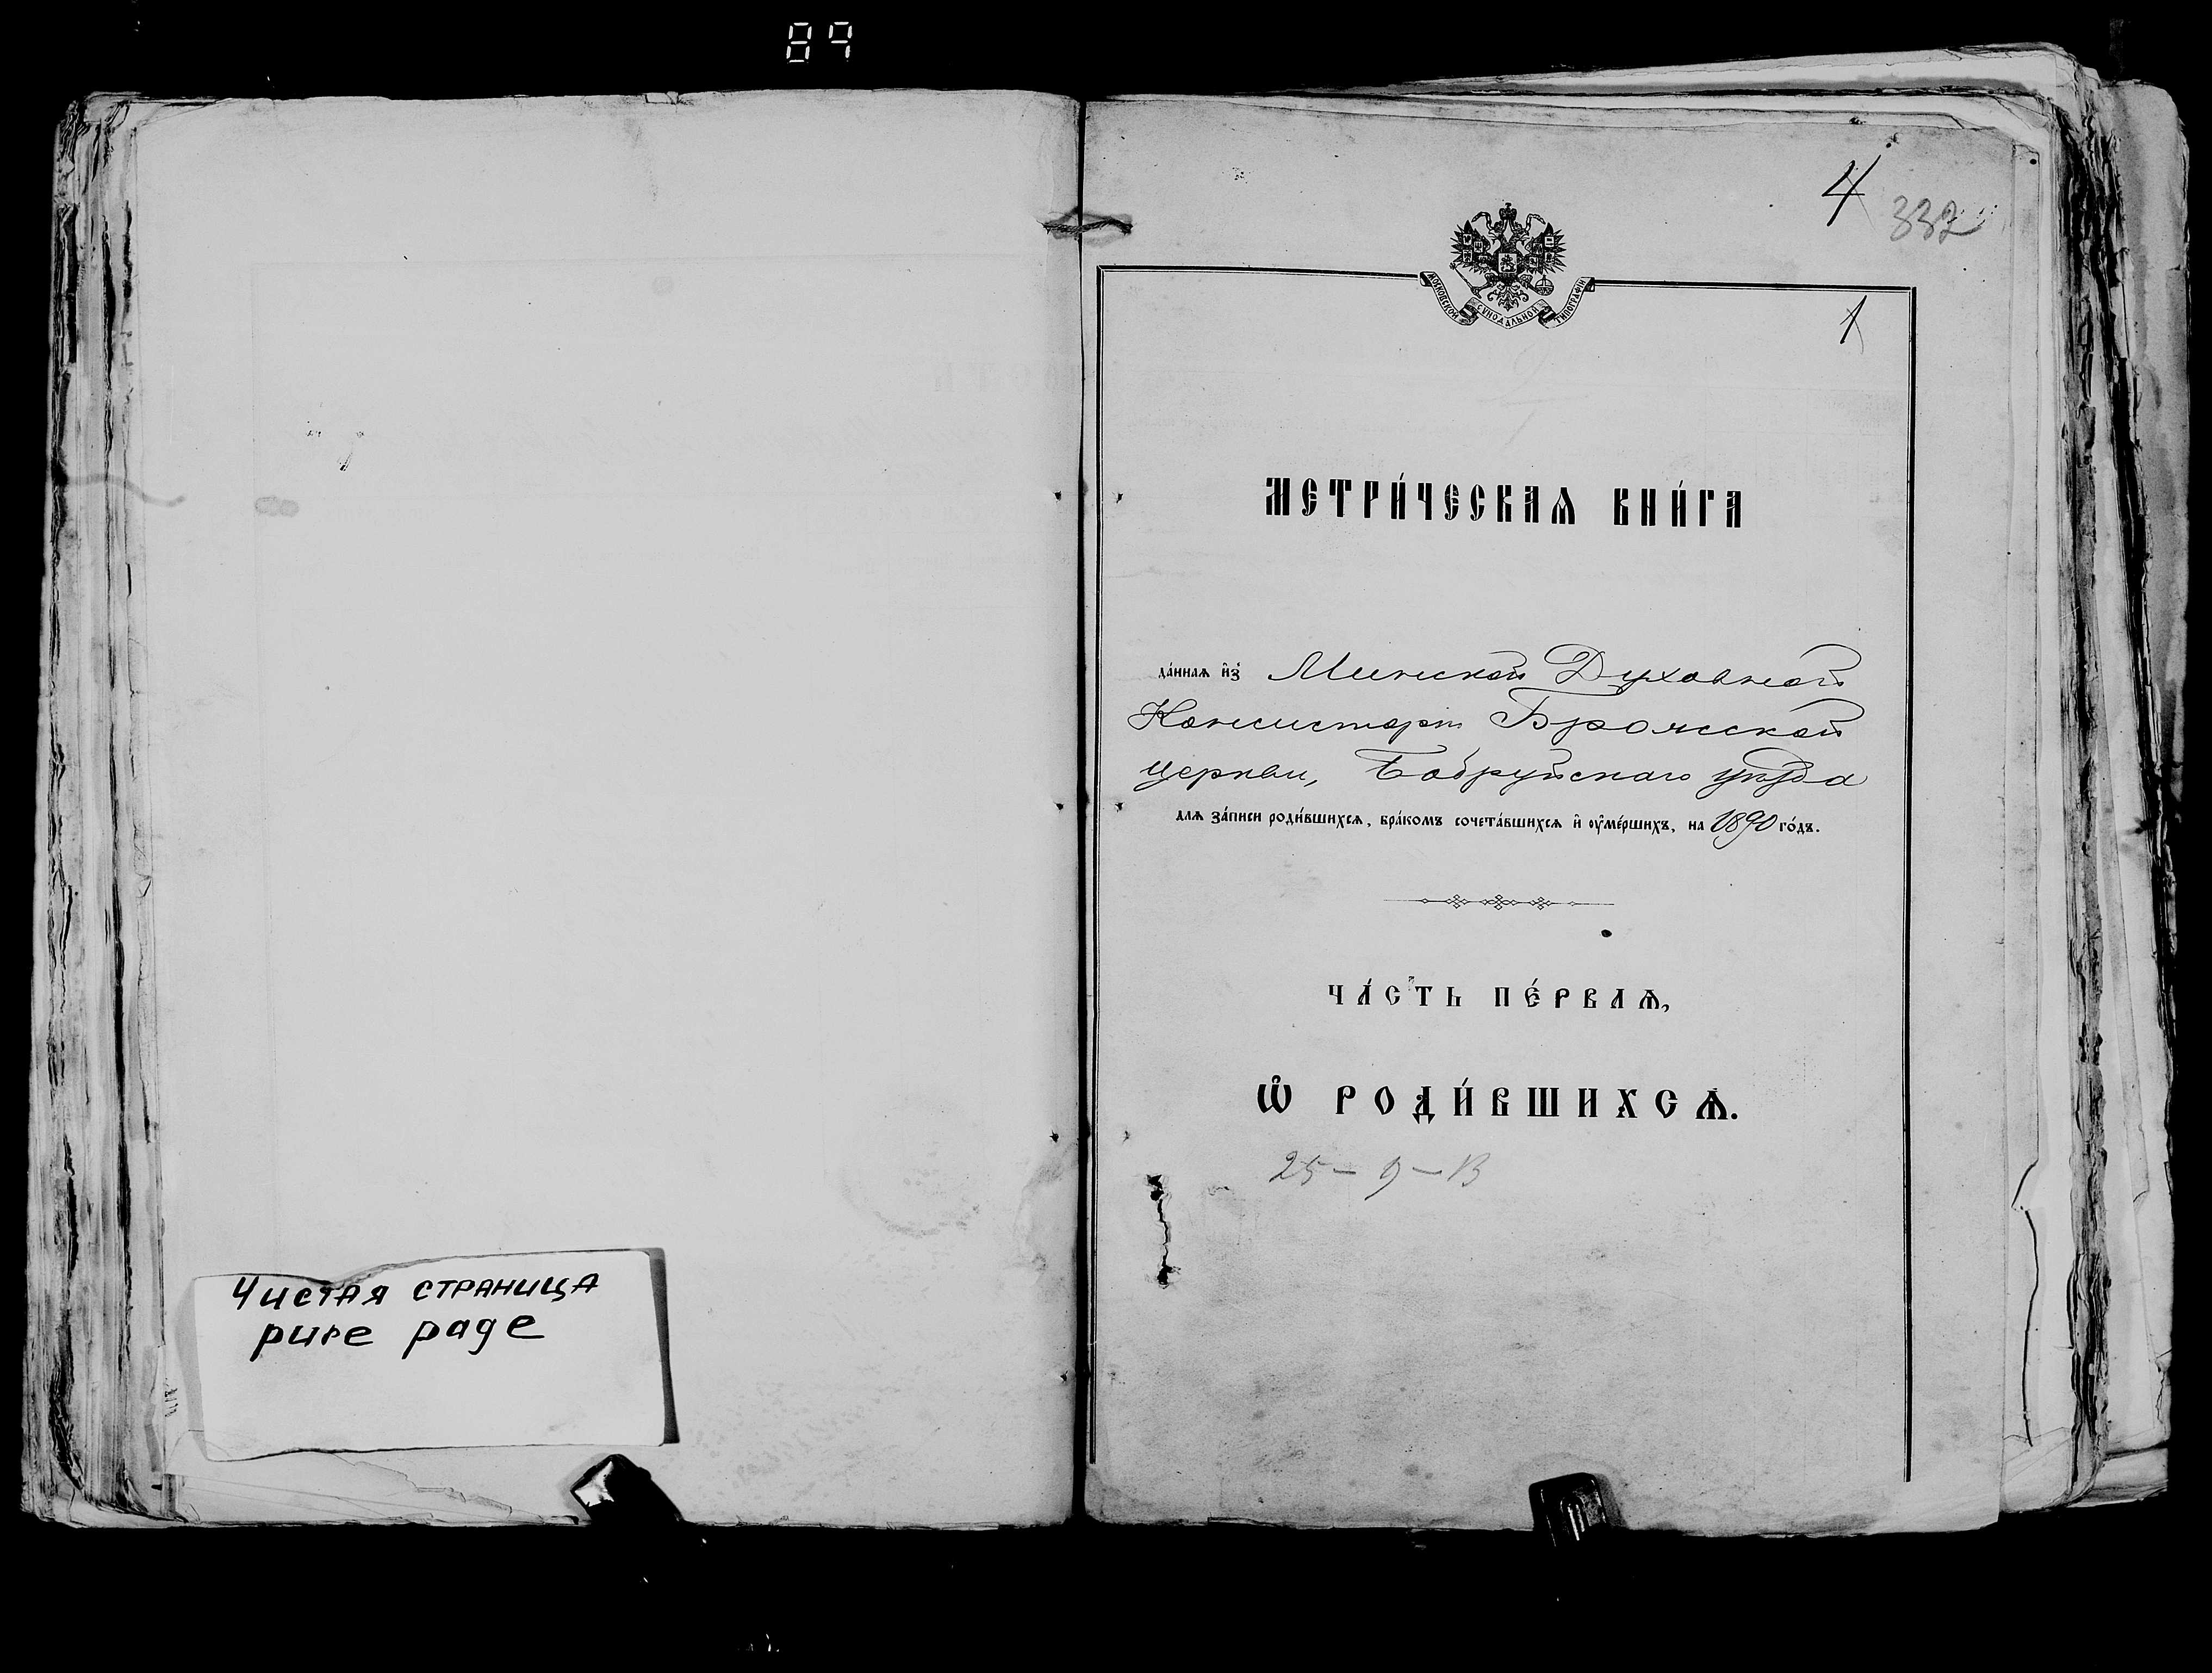 89
Чистая страница
pure page
4
332
МОСКОВСКОЙ СѴНОДАЛЬНОЙ ТИПОГРАФІИ
1
МЕТРИ́ЧЕСКАѦ КНИ́ГА
да́ннаѧ и҆з̾ Минской Духовной
Консисторіи Брожской
церкви, Бобруйскаго уѣзда
длѧ за́писи роди́вшихсѧ, бра́комъ сочета́вшихсѧ и҆ ᲂу҆ме́ршихъ, на 1890 го́дъ.
ЧА́СТЬ ПЕ́РВАѦ,
Ѽ РОДИ́ВШИХСѦ.
25 – 9 – В